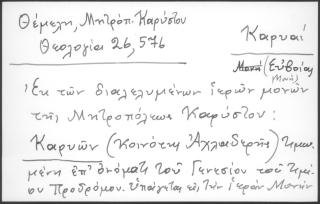 Θέμελη, Μητρόπ. Καρύστου
Θεολογία 26, 576
Καρυαί
Μονή (Εὐβοίας)
Μονή
Ἐκ τῶν διαλελυμένων ἱερῶν μονῶν
τῆς Μητροπόλεως Καρύστου:
Καρυῶν (Κοινότης Ἀχλαδερῆς) τιμω-
μένη ἐπ' ὀνόματι τοῦ Γενεσίου τοῦ Τιμί-
ου Προδρόμου. Ὑπάγεται εἰς τὴν ἱερὰν Μονὴν